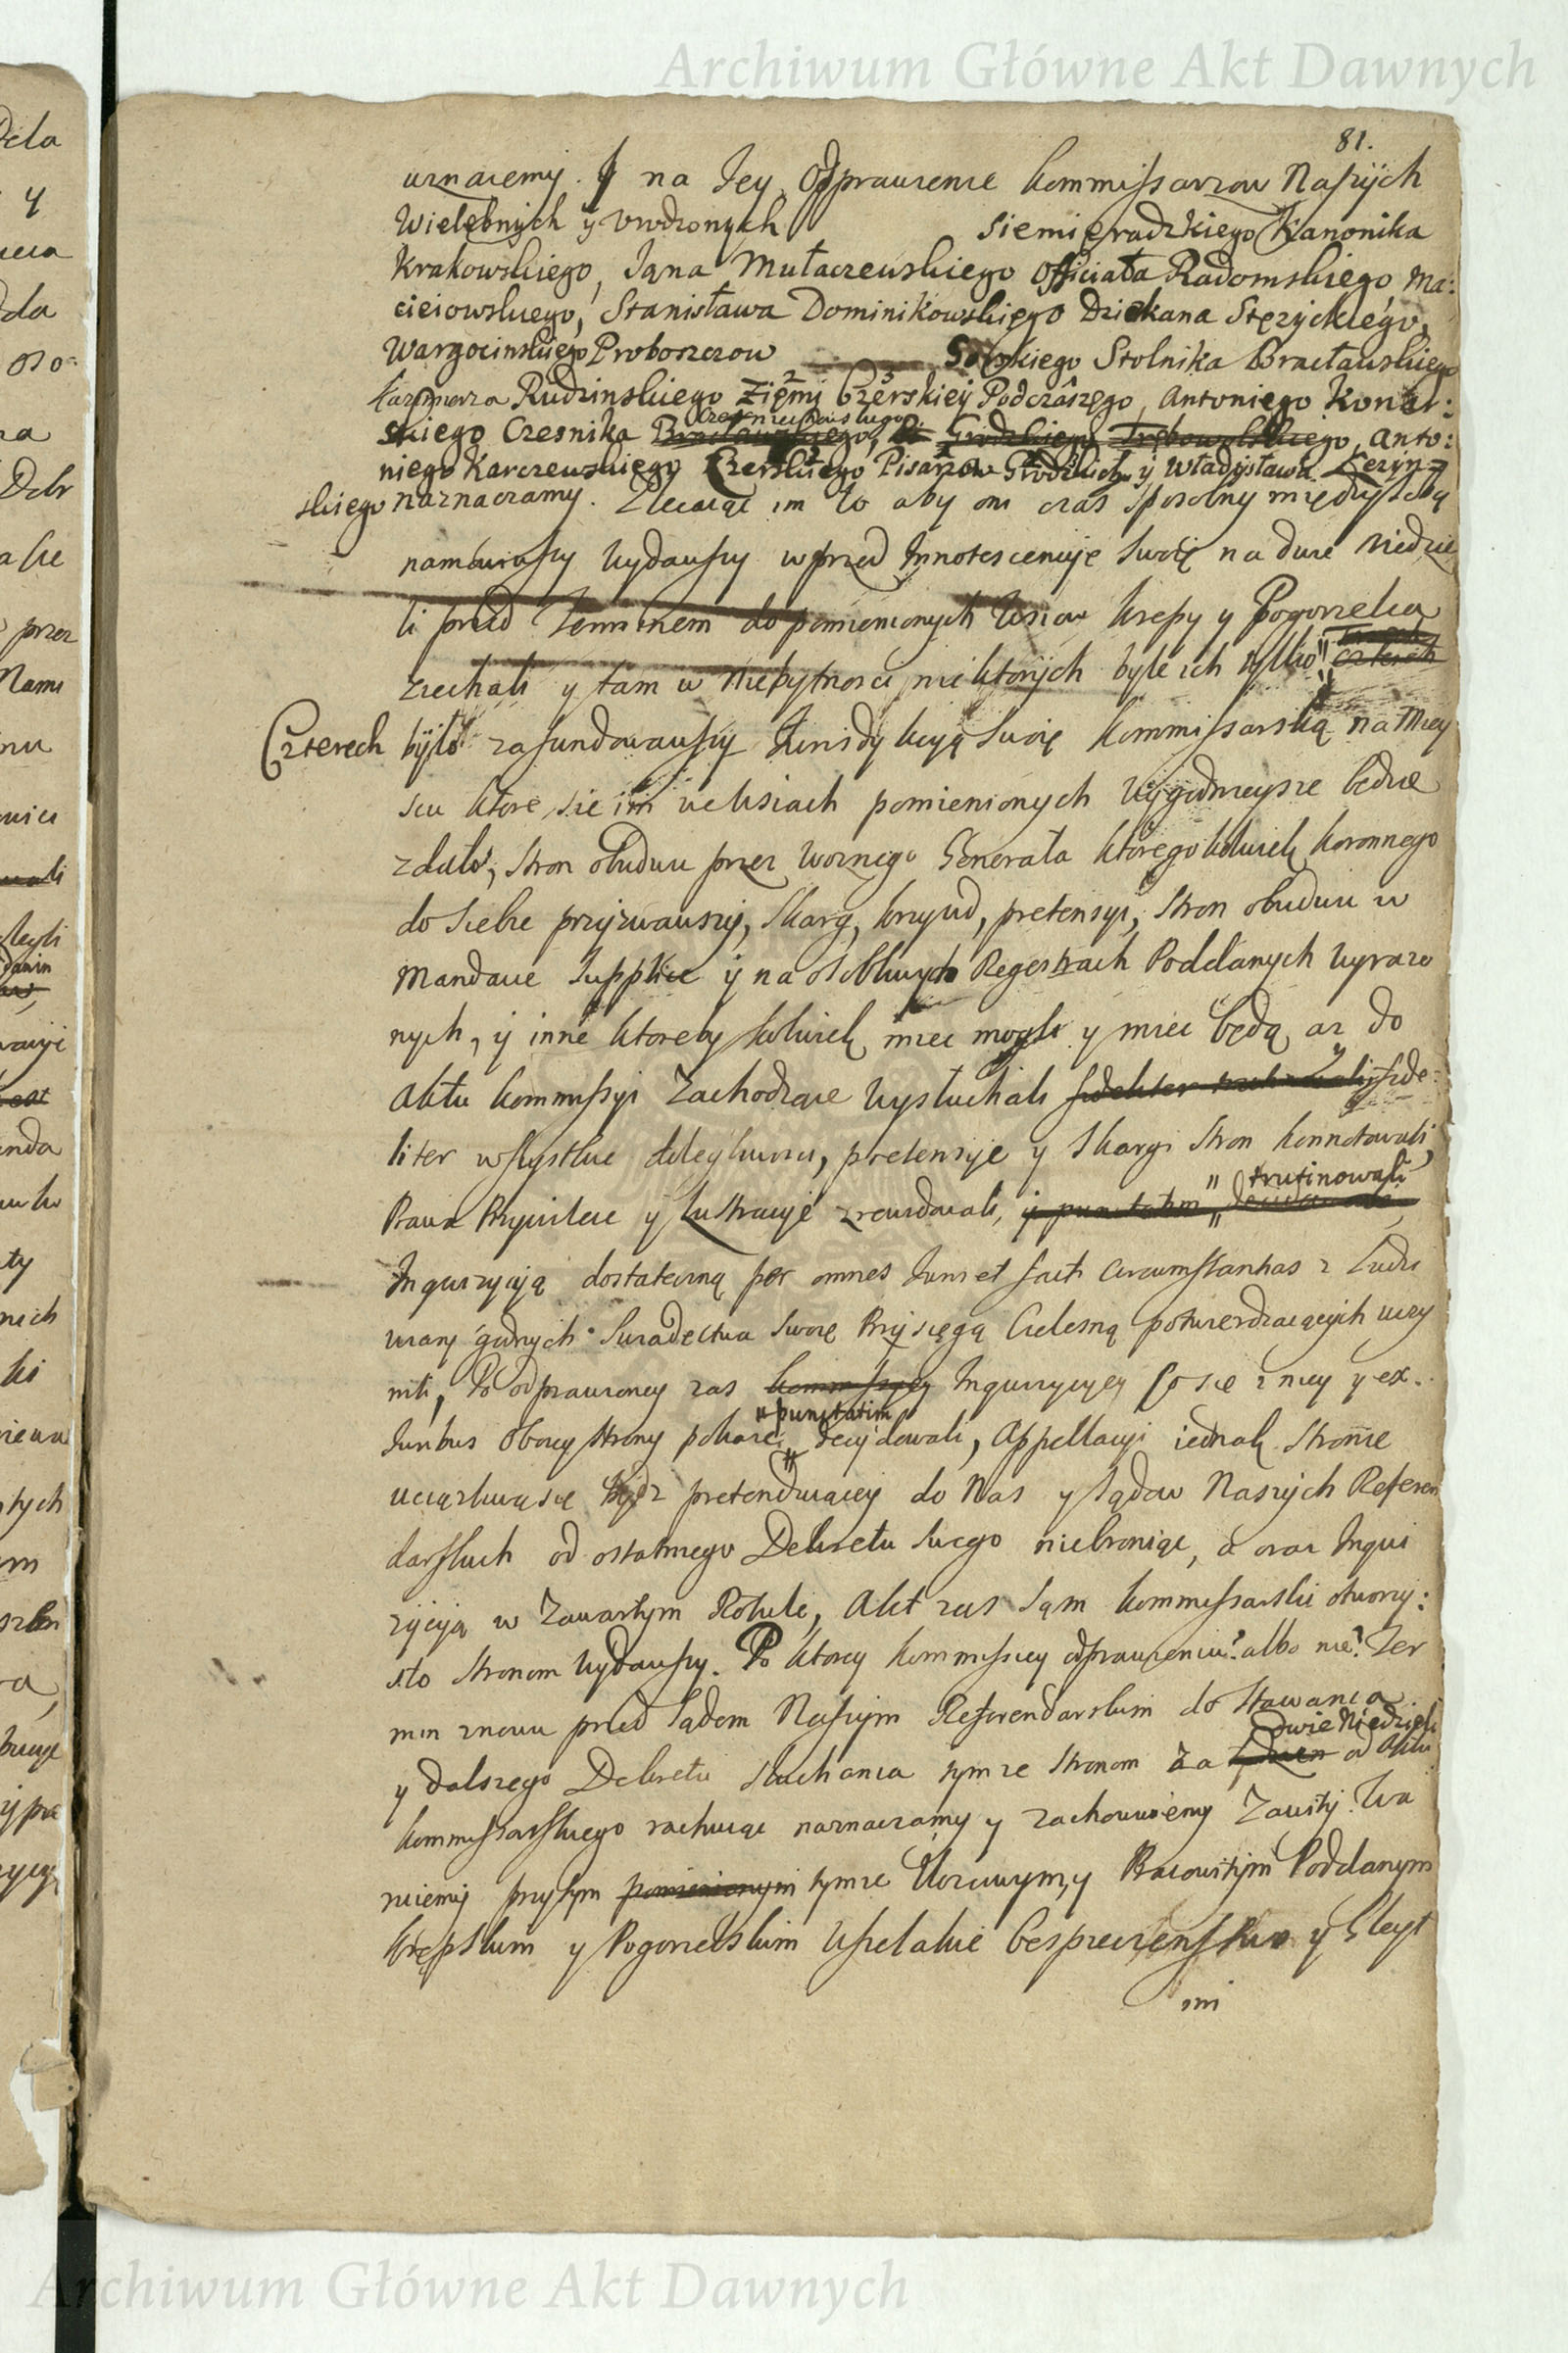 Archiwum Główne Akt Dawnych
81.
uznaiemy. Y na Jey Odprawienie Kommissarzow Naszych
Wielebnych y Urodzonych Siemieradzkiego Kanonika
Krakowskiego, Jana Mułaczewskiego Officiała Radomskiego, Ma:
cieiowskiego, Stanisława Dominikowskiego Dziekana Stęzyckiego,
Wargocinskiego Proboszczow Gorskiego Stolnika Bracławskiego
Kazimierza Rudzinskiego Ziemi Czerskiey Podczaszego, Antoniego Konar:
skiego Czesnika Bracławskiego, Grodzkiego Trębowolskiego, Anto:
niego Karczewskiego Czerskiego Pisarzow Grodzkich y Władysława Lezyn=
skiego naznaczamy. Zlecaiąc im to aby oni czas sposobny między sobą
namowiwszy wydawszy wprzed Innotescencyje swoię na dwie Niedzie
li przed Terminem do pomienionych Wsiow Krepy y Pogorzelca
ziechali y tam w niebytnosci niektorych byle ich tylko czterech
Czterech było zafundowawszy Jurisdykcyą swoię Kommissarską na Miey
scu ktore sie im we wsiach pomienionych wygodnieysze będzie
zdało, stron obudwu przez Woznego Generała ktoregokolwiek Koronnego
do siebie przyzwawszy, skarg, krzywd, pretensyi, stron obudwu w
Mandacie Supplice y na osobliwych Regestrach Poddanych wyrazo
nych, y inne ktoreby kolwiek miec mogli y miec będą az do
Aktu Kommissyi zachodzące wysłuchali fide
liter wszystkie dolegliwosci, pretensyje y skargi stron konnotowali,
Prawa Przywileie y Lustracyje zrewidowali, y punctatim trutinowali
Inquizycyią dostateczną per omnes Juris et facti circumstantias z Ludzi
wiary godnych Swiadectwa swoie Przysięgą Cielesną potwierdzaiących uczy
nili, Po odprawioney zas Kommissyey Inquizycyey co się z niey y ex
Juribus oboiey strony pokaze punctatim decydowali, Appellacyi iednak stronie
uciązliwą się bydz pretenduiącey do Nas y sądow Naszych Referen
darskich od ostatniego Dekretu swego niebroniąc, a oraz Inqui
zycyią w Zawartym Rotule, Akt zas sam Kommissarski otworzy:
sto stronom wydawszy. Po ktorey Kommissiey odprawieniu albo nie Ter
min znowu przed Sądem Naszym Referendarskim do stawania
y dalszego Dekretu słuchania tymze stronom za dwie Niedzieli od Aktu
Kommissarskiego rachuiąc naznaczamy y zachowuiemy Zawity. Wa
ruiemy przytym pomienionym tymze Uczciwym, y Pracowitym Poddanym
Krępskim y Pogorzelskim wszelakie bespieczenstwo y Gleyt
im
Archiwum Główne Akt Dawnych